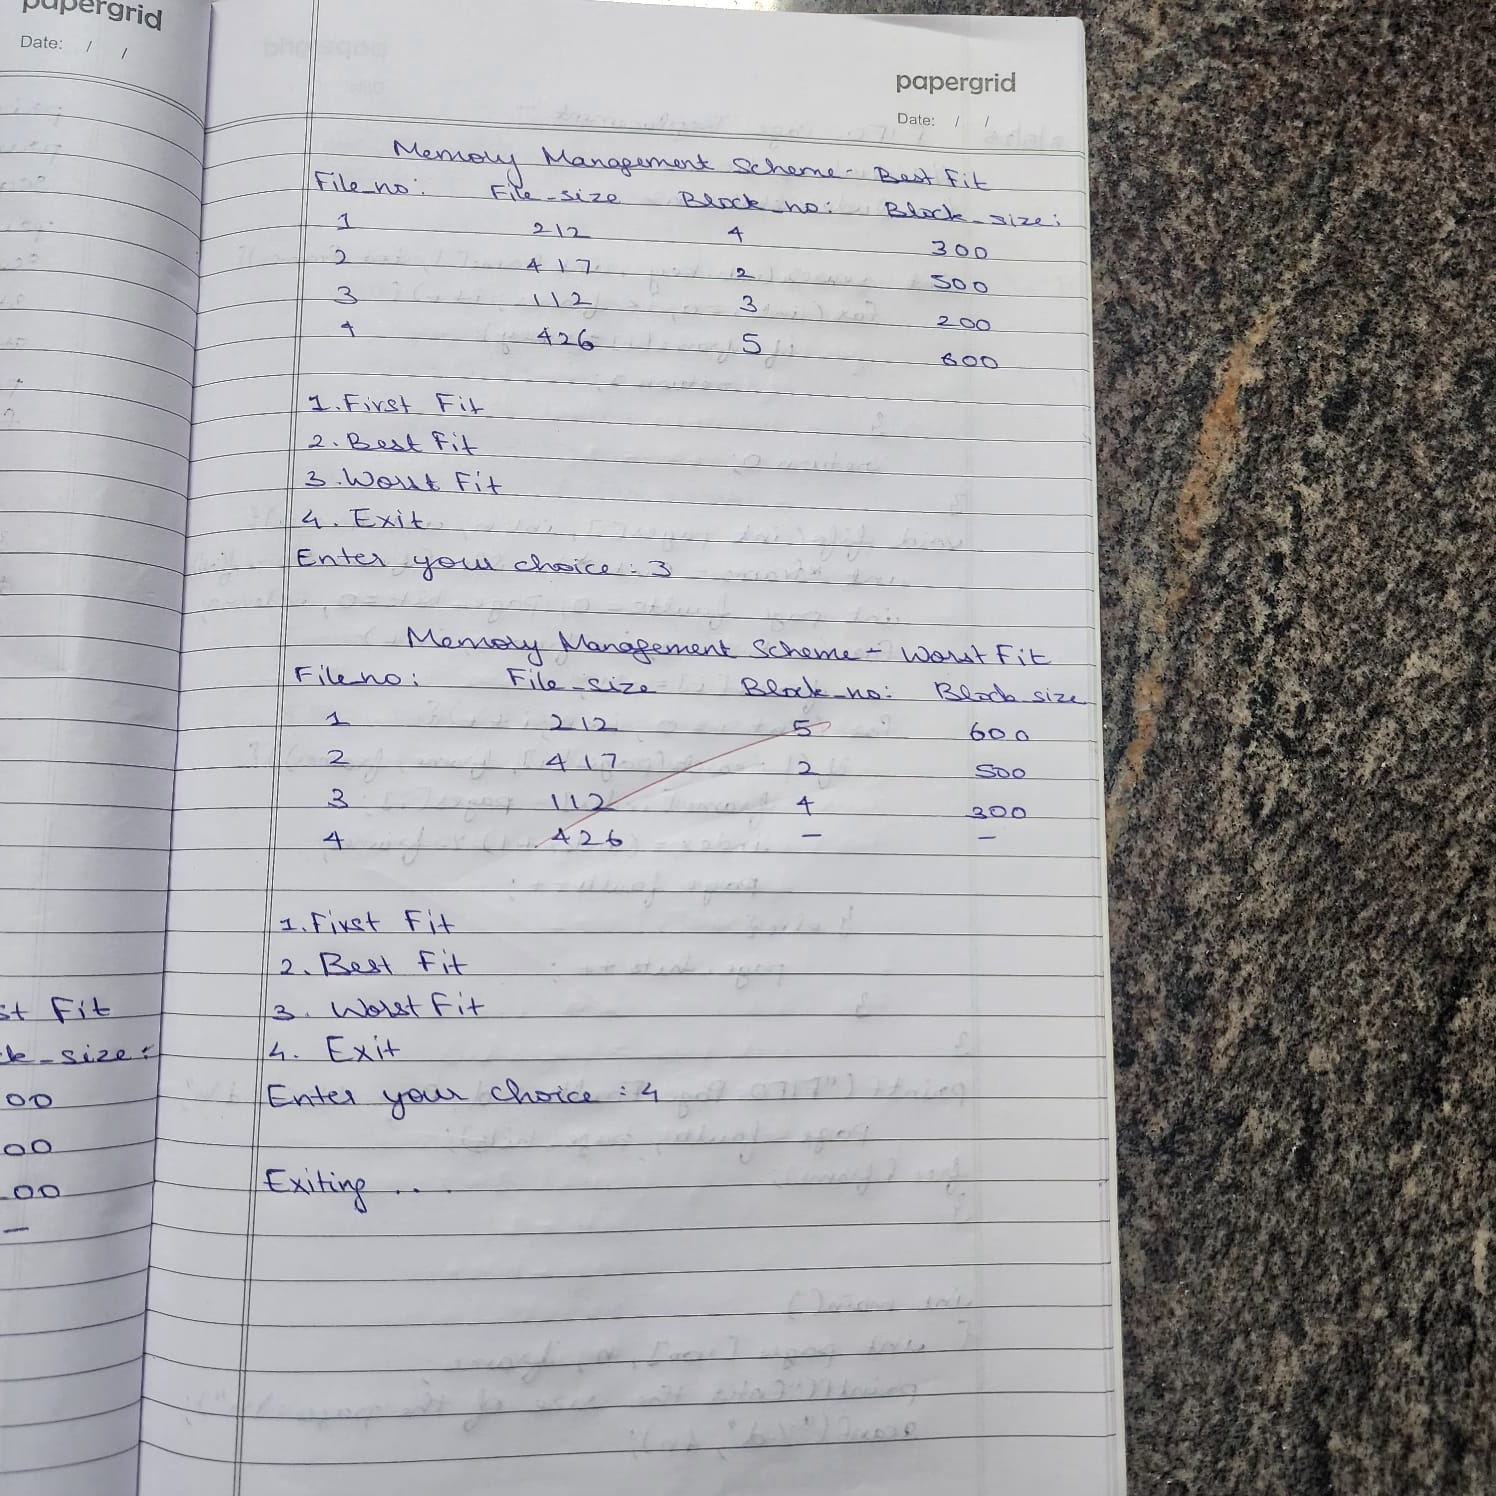 papergrid
Date: / /
st Fit
k-size:
00
00
00
–
papergrid
Date: / /
Memory Management Scheme - Best Fit
File no: File-size Block-no: Block-size:
1 212 4 300
2 417 2 500
3 112 3 200
4 426 5 600
1. First Fit
2. Best Fit
3. Worst Fit
4. Exit
Enter your choice : 3
Memory Management Scheme - Worst Fit
File no: File-size Block-no: Block size
1 212 5 600
2 417 2 500
3 112 4 300
4 426 – –
1. First Fit
2. Best Fit
3. Worst Fit
4. Exit
Enter your choice : 4
Exiting ...